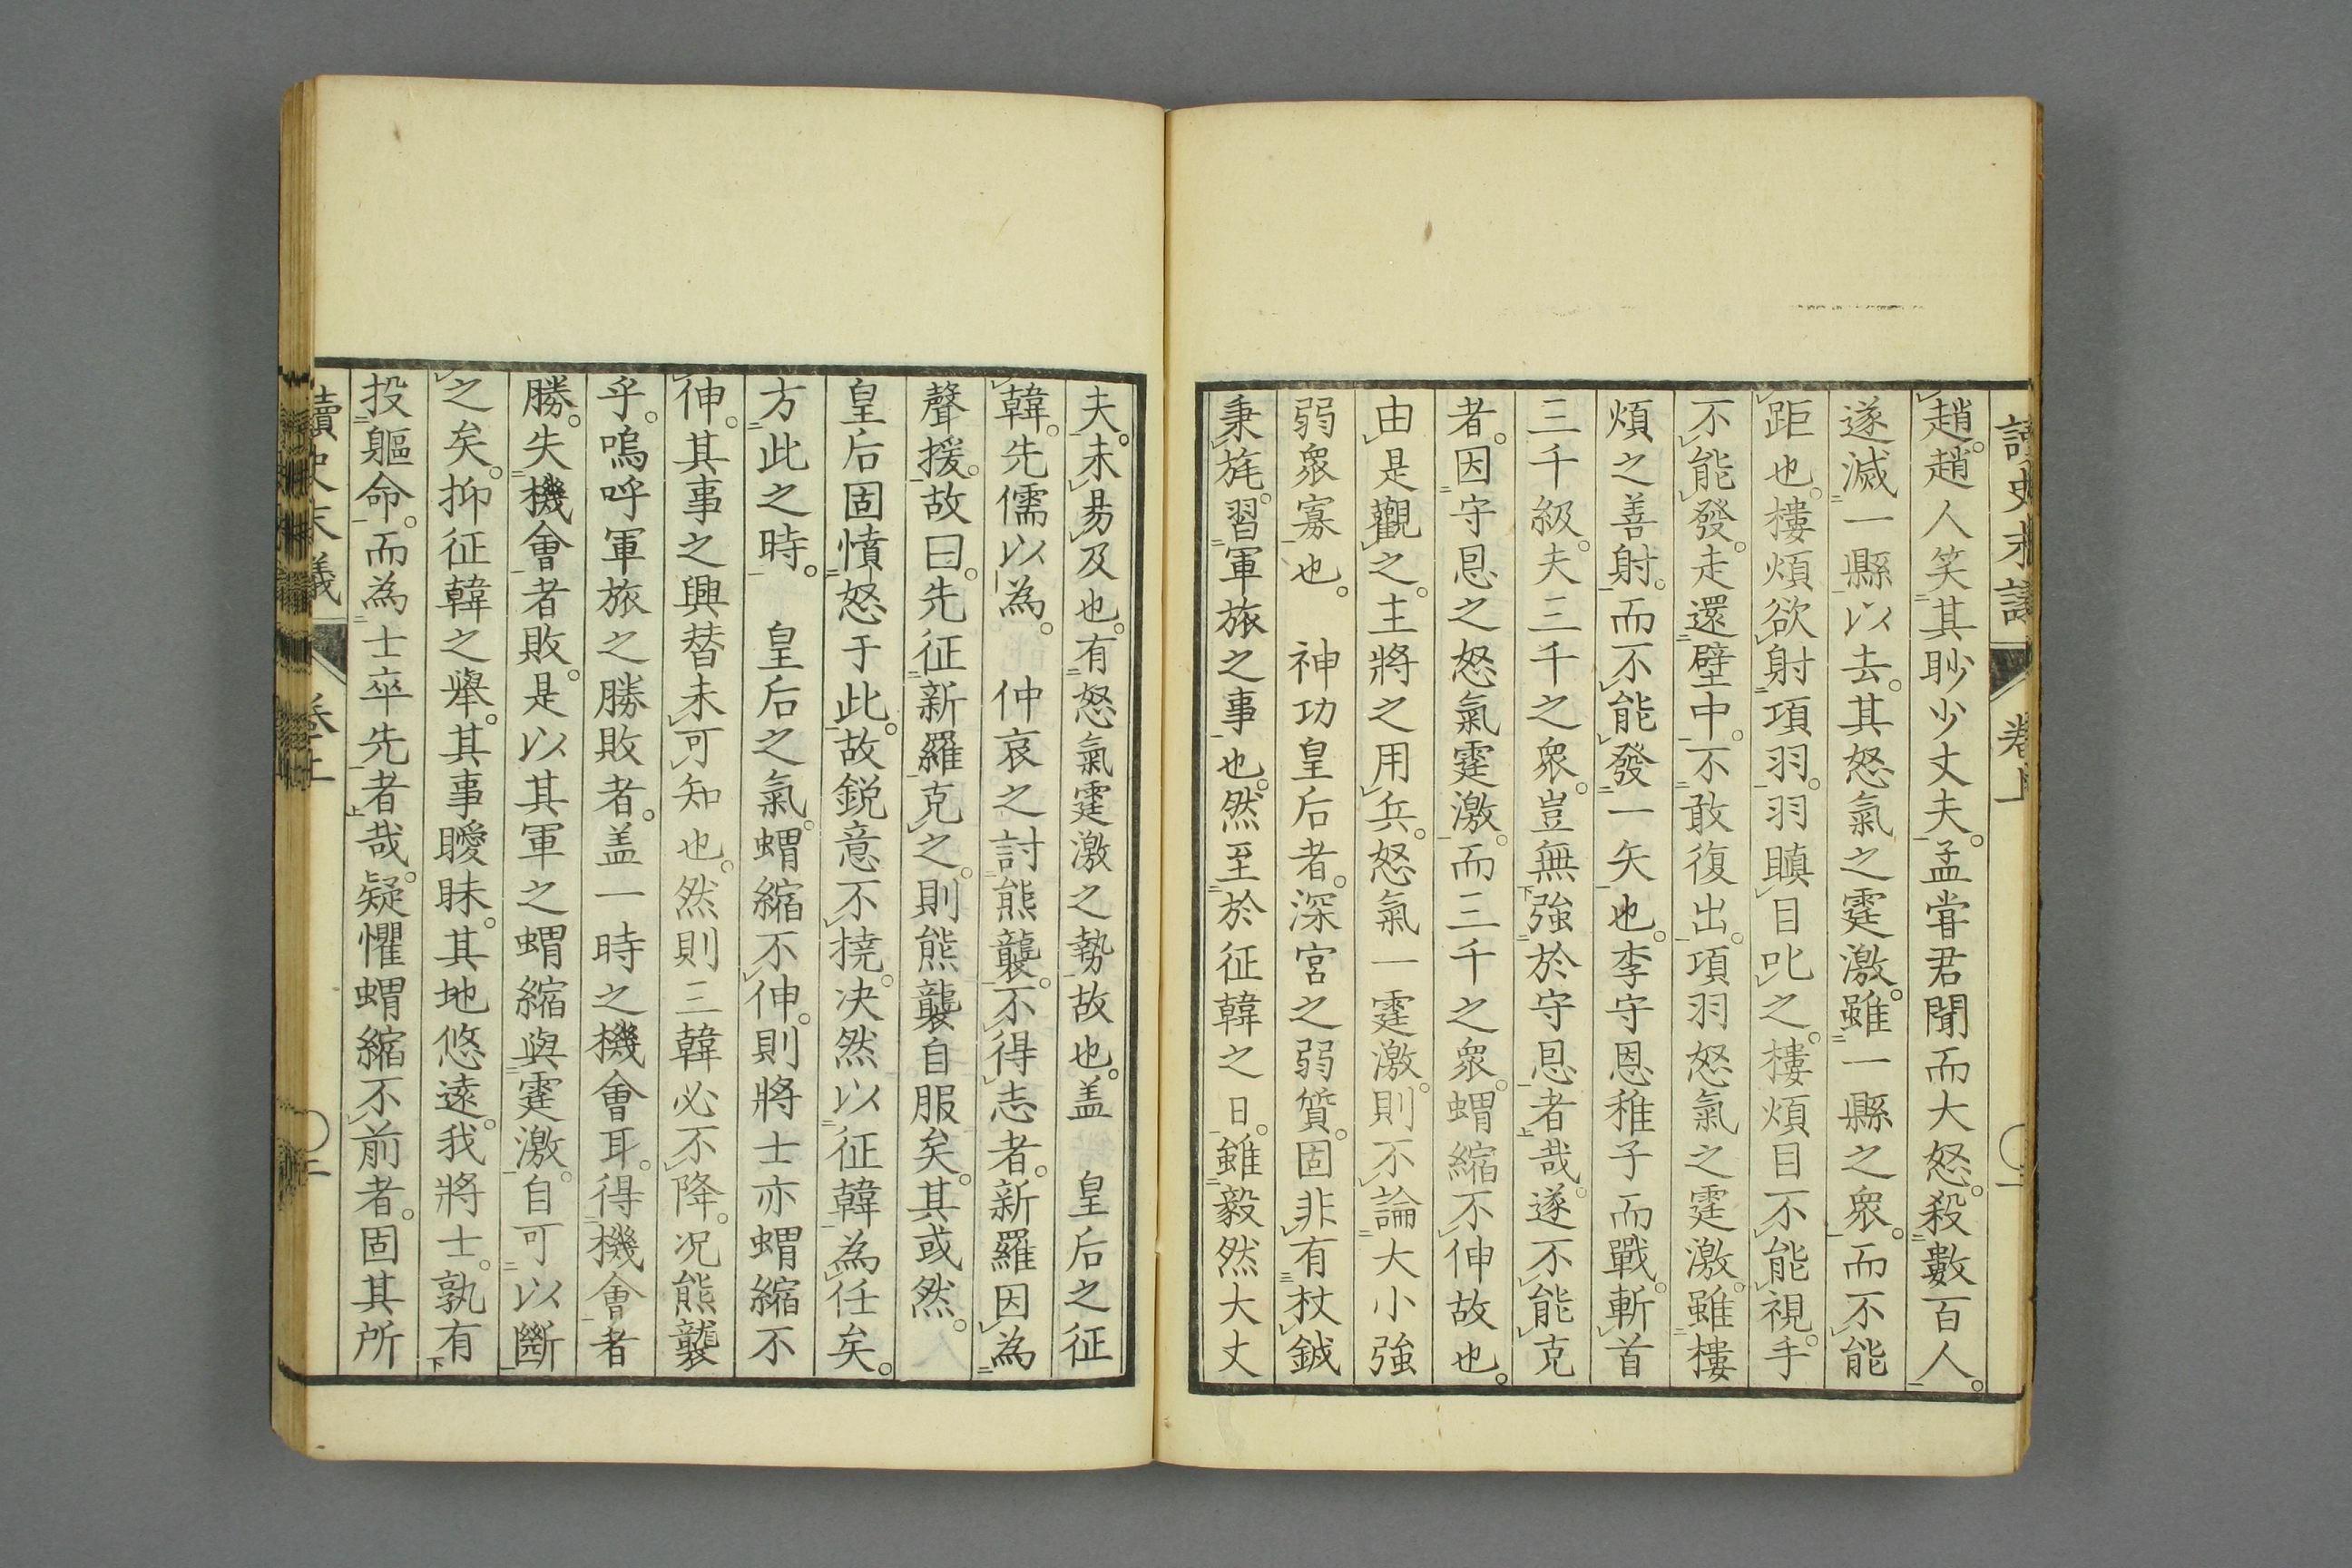 趙。趙人笑其眇少丈夫。孟甞君聞而大怒。殺數百人。
遂滅一縣以去。其怒氣之霆激。雖一縣之衆。而不能
距也。樓煩欲射項羽。羽瞋目叱之。樓煩目不能視。手
不能發。走還壁中。不敢復出。項羽怒氣之霆激。雖樓
煩之善射。而不能發一矢也。李守恩稚子而戰。斬首
三千級。夫三千之衆。豈無強於守恩者哉。遂不能克
者。因守恩之怒氣霆激。而三千之衆。蝟縮不伸故也。
由是觀之。主將之用兵。怒氣一霆激。則不論大小強
弱衆寡也。　神功皇后者。深宮之弱質。固非有杖鉞
秉旄。習軍旅之事也。然至於征韓之日。雖毅然大丈
夫。未易及也。有怒氣霆激之勢故也。盖　皇后之征
韓。先儒以為。　仲哀之討熊襲。不得志者。新羅因為
聲援。故曰。先征新羅克之。則熊襲自服矣。其或然。
皇后固憤怒于此。故鋭意不撓。决然以征韓為任矣。
方此之時。　皇后之氣。蝟縮不伸。則將士亦蝟縮不
伸。其事之興替未可知也。然則三韓必不降。况熊襲
乎。嗚呼軍旅之勝敗者。盖一時之機會耳。得機會者
勝。失機會者敗。是以其軍之蝟縮與霆激。自可以斷
之矣。抑征韓之擧。其事曖昧。其地悠遠。我將士。孰有
投軀命。而為士卒先者哉。疑懼蝟縮不前者。固其所
讀史末議　卷上　二